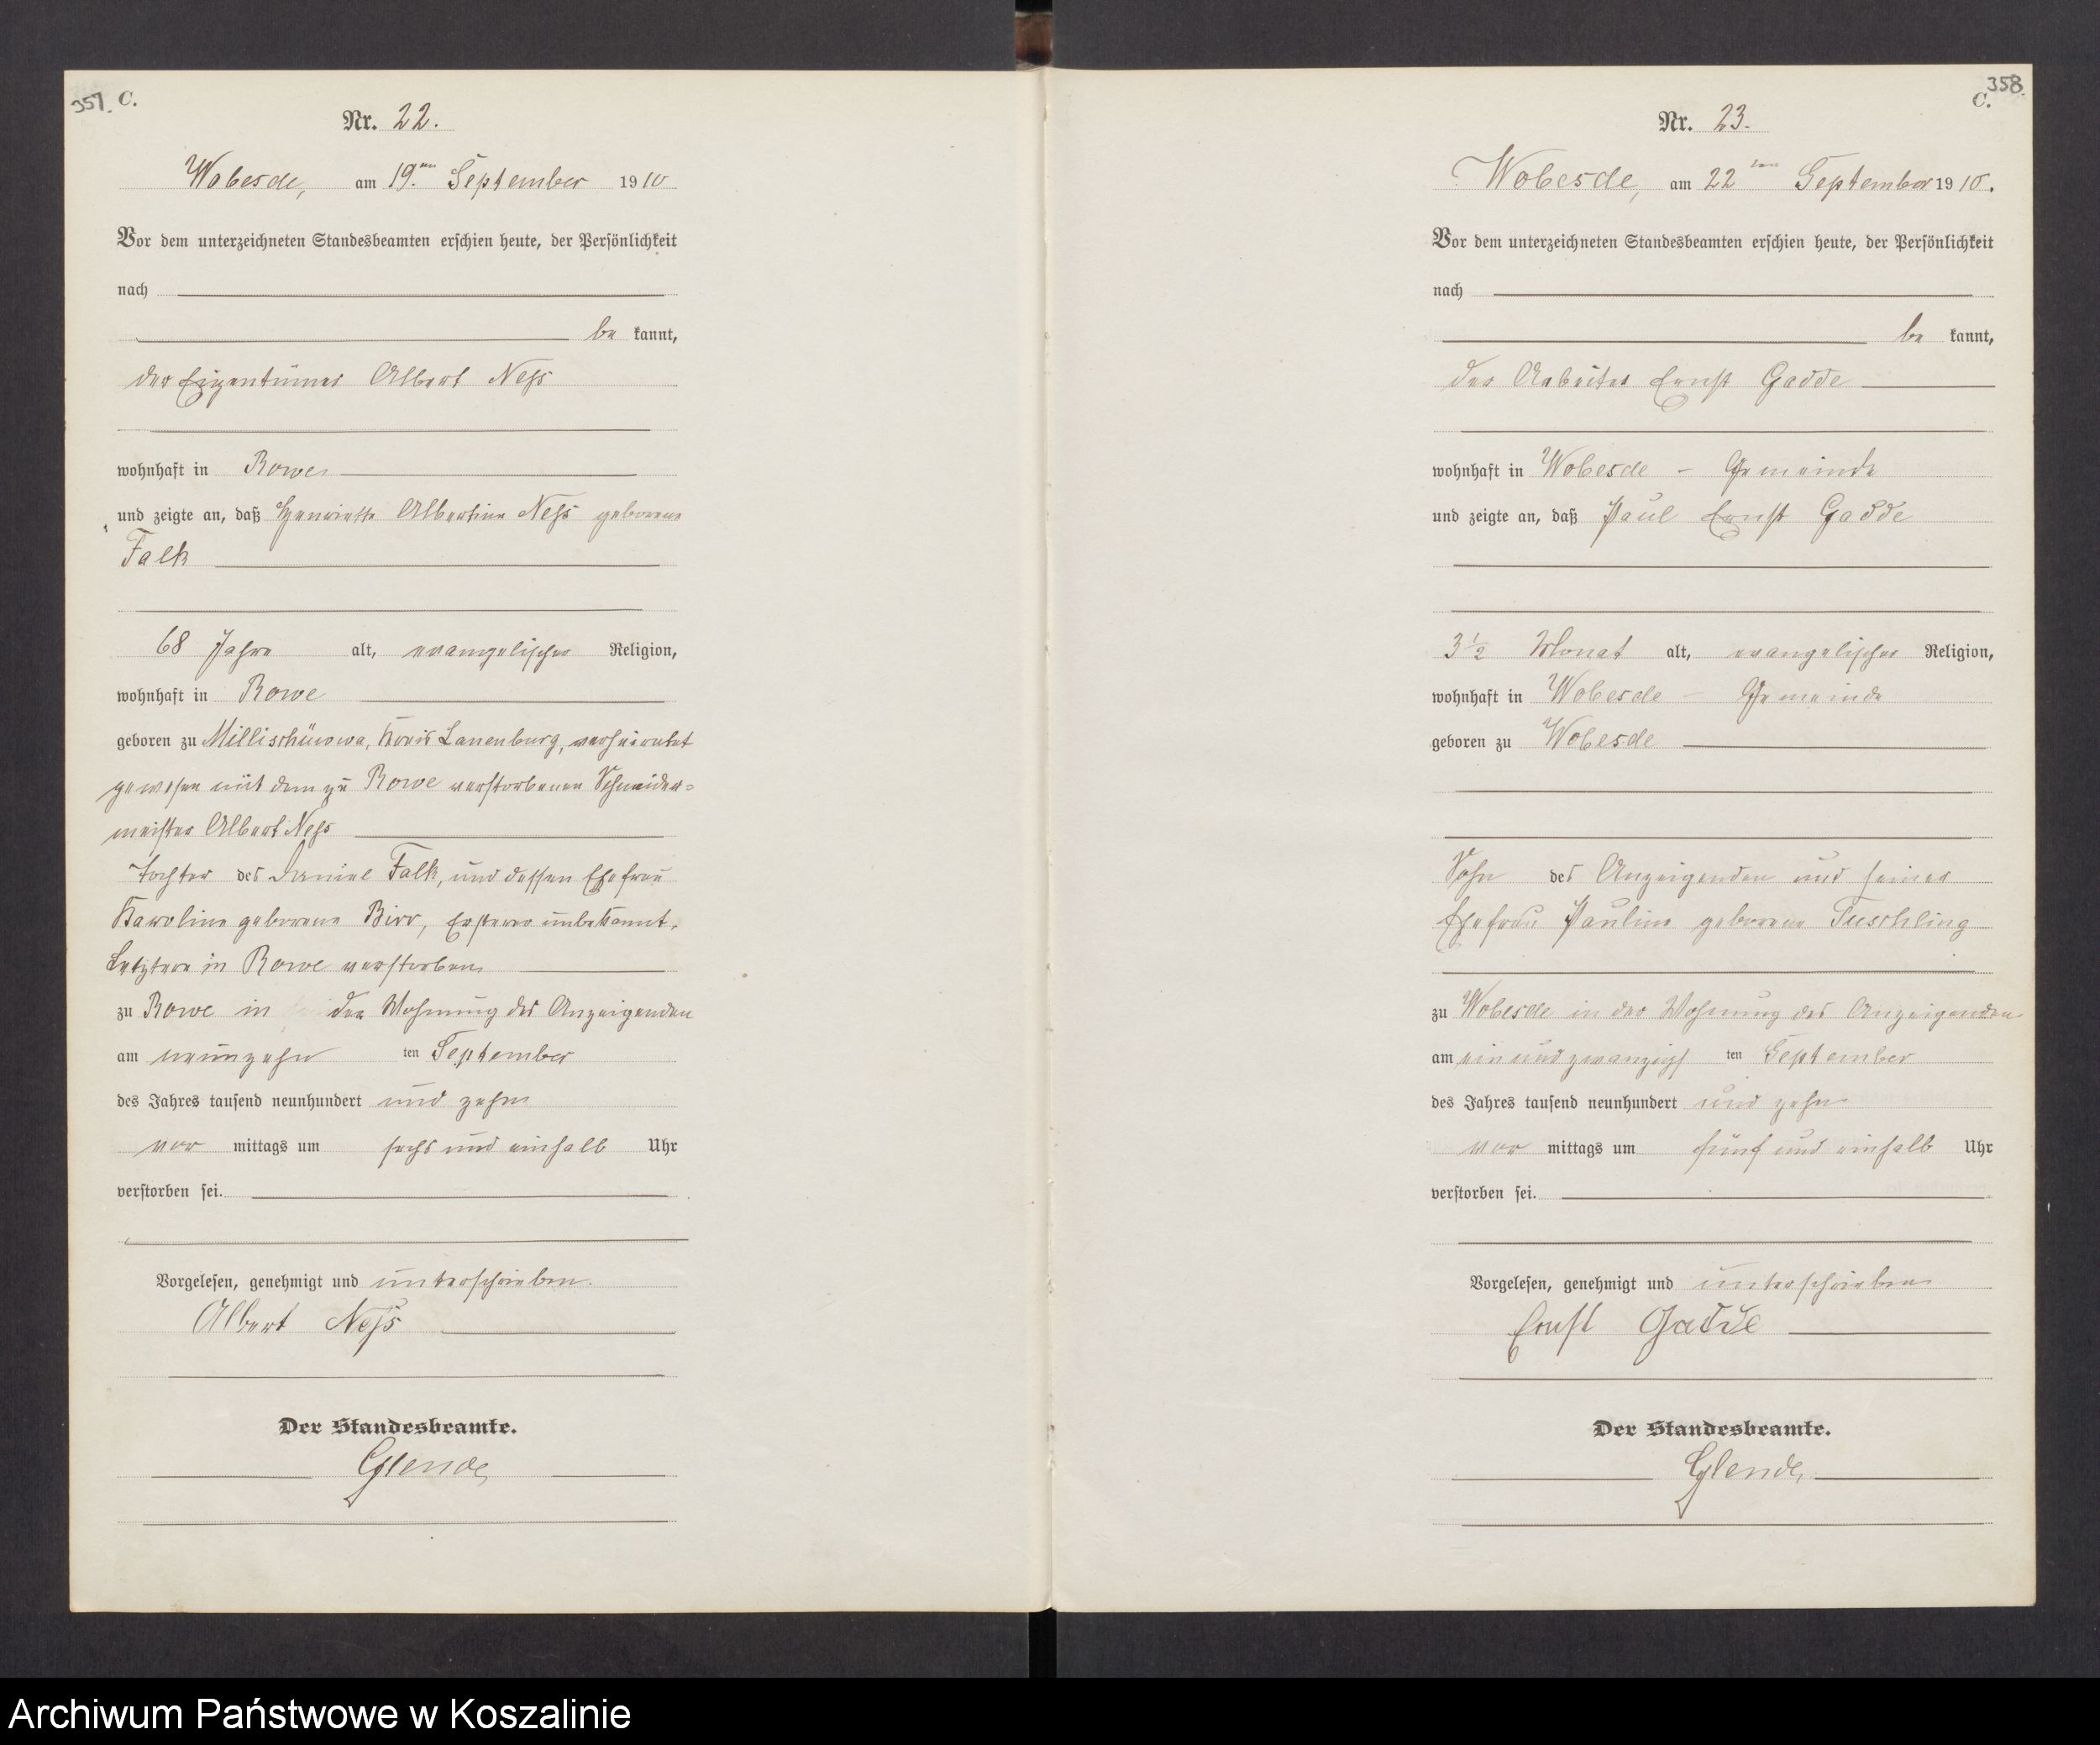 357. C.
Nr. 22.
Wobesde, am 19.ten September 1910
Vor dem unterzeichneten Standesbeamten erschien heute, der Persönlichkeit
nach
be kannt,
der Eigentümer Albert Neß
wohnhaft in Rowe
und zeigte an, daß Henriette Albertine Neß geborene
Falk
68 Jahre alt, evangelischer Religion,
wohnhaft in Rowe
geboren zu Kreis Lauenburg, verheiratet
gewesen mit dem zu Rowe verstorbenen Schneider=
meister Albert Neß
Tochter des Daniel Falk, und dessen Ehefrau
Karoline geborene Birr, Ersterer unbekannt,
Letztere in Rowe verstorben
zu Rowe in der Wohnung des Anzeigenden
am neunzehn ten September
des Jahres tausend neunhundert und zehn
vor mittags um sechs und einhalb Uhr
verstorben sei.
Vorgelesen, genehmigt und unterschrieben.
Albert Neß
Der Standesbeamte.
Glende
358.
C.
Nr. 23.
Wobesde, am 22 ten September 1910.
Vor dem unterzeichneten Standesbeamten erschien heute, der Persönlichkeit
nach
be kannt,
der Arbeiter Ernst Gadde
wohnhaft in Wobesde - Gemeinde
und zeigte an, daß Paul Ernst Gadde
3 1/2 Monat alt, evangelischer Religion,
wohnhaft in Wobesde - Gemeinde
geboren zu Wobesde
Sohn des Anzeigenden und seiner
Ehefrau Pauline geborene Tuschling
zu Wobesde in der Wohnung des Anzeigenden
am ein und zwanzigst ten September
des Jahres tausend neunhundert und zehn
vor mittags um fünf und einhalb Uhr
verstorben sei.
Vorgelesen, genehmigt und unterschrieben
Ernst Gadde
Der Standesbeamte.
Glende
Archiwum Państwowe w Koszalinie